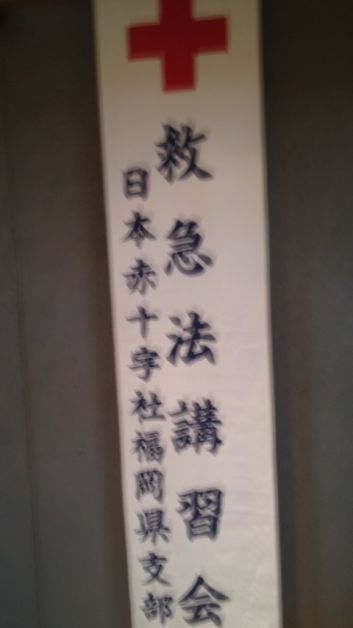 救急法講習会
日本赤十字社福岡県支部